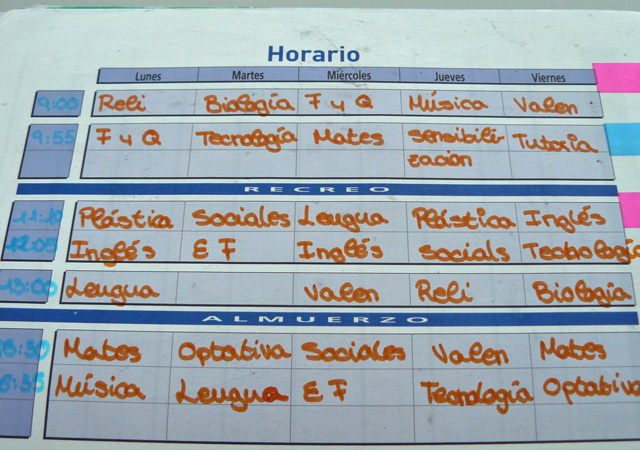 Horario
Lunes Martes Miércoles Jueves Viernes
9:00 Reli Biología F y Q Música Valen
9:55 F y Q Tecnología Mates Sensibili- Tutoria
zación
RECREO
11:10 Plástica Sociales Lengua Plástica Inglés
12:05 Inglés E F Inglés Socials Tecnología
13:00 Lengua Valen Reli Biología
ALMUERZO
Mates Optativa Sociales Valen Mates
Música Lengua E F Tecnología Optativa